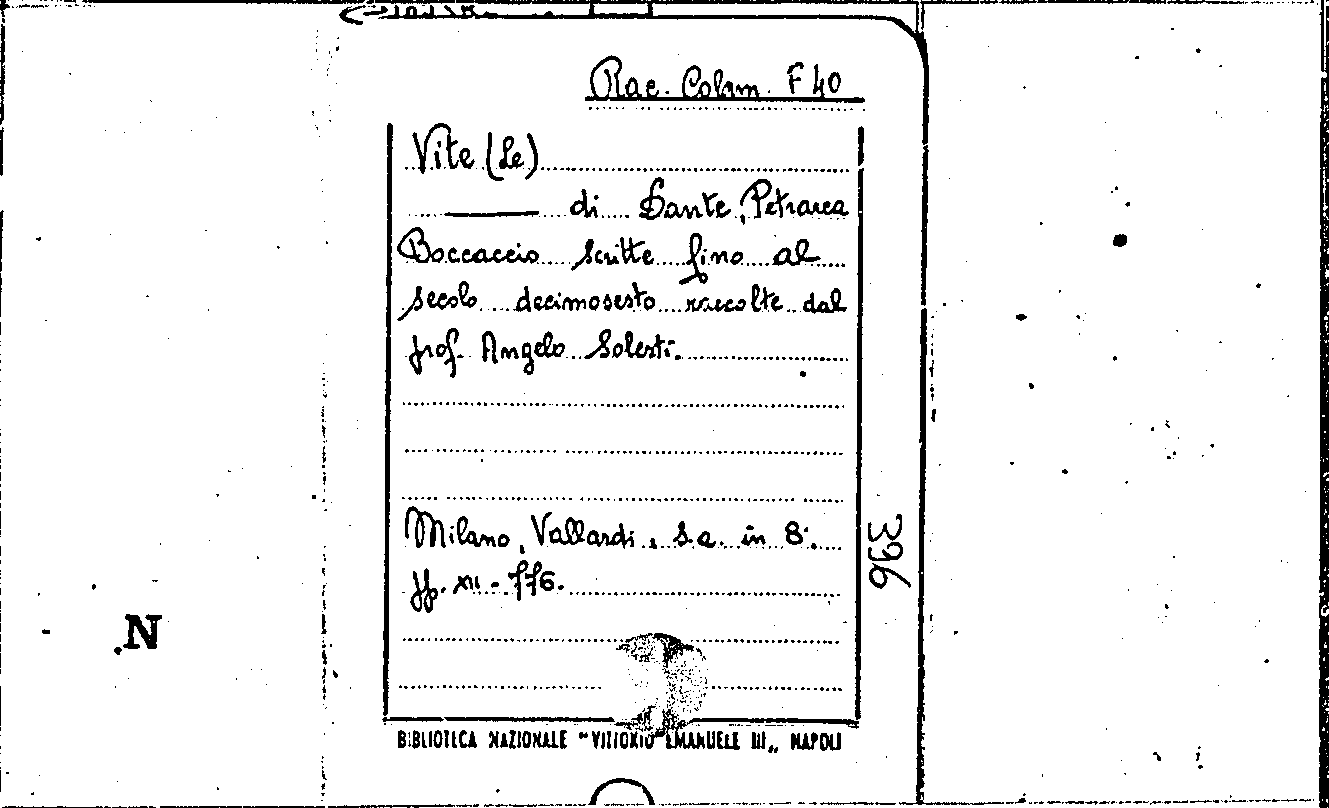 Rac. Colam. F 40
Vite (Le)
di Dante, Petrarca
Boccaccio scritte fino al
secolo decimosesto raccolte dal
prof. Angelo Solerti.
Milano, Vallardi, s.a. in 8°.
pp. XII - 776.
396
N
BIBLIOTECA NAZIONALE "VITTORIO EMANUELE III„ NAPOLI